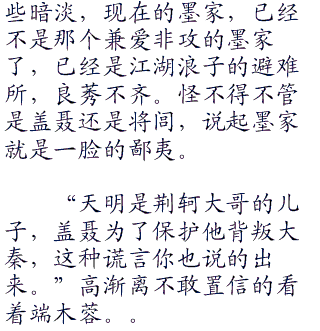 些暗淡，现在的墨家，已经
不是那个兼爱非攻的墨家
了，已经是江湖浪子的避难
所，良莠不齐。怪不得不管
是盖聂还是将闾，说起墨家
就是一脸的鄙夷。
“天明是荆轲大哥的儿
子，盖聂为了保护他背叛大
秦，这种谎言你也说的出
来。”高渐离不敢置信的看
着端木蓉。。